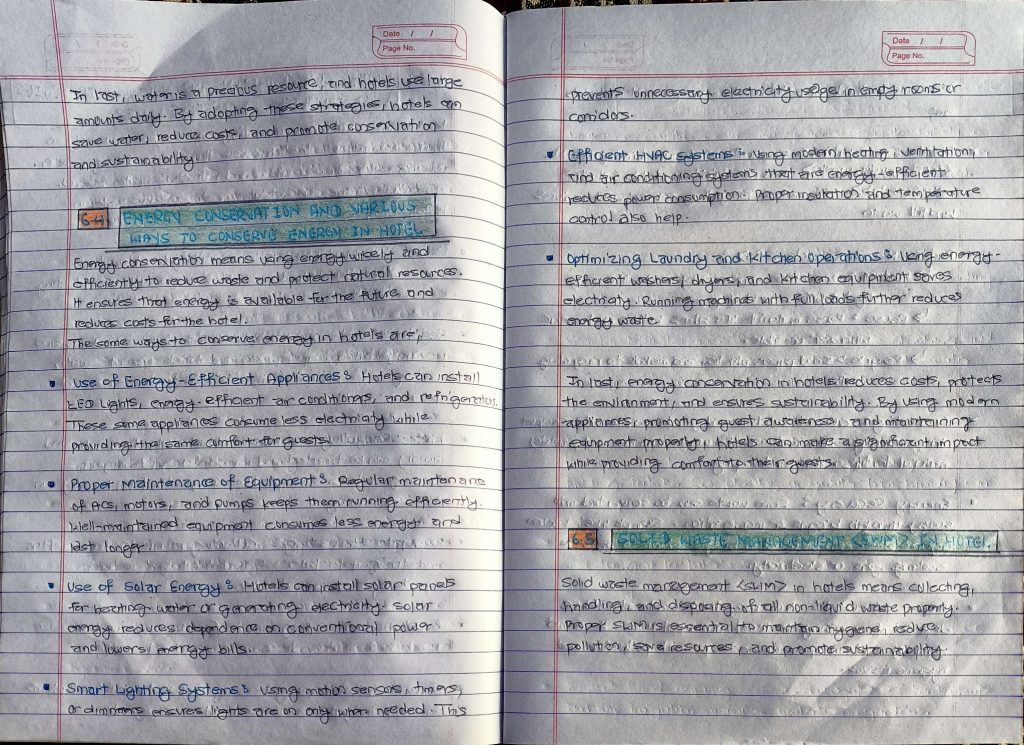 Date / /
Page No.
In last, water is a precious resource, and hotels use large
amounts daily. By adopting these strategies, hotels can
save water, reduce costs, and promote conservation
and sustainability.
6.4 ENERGY CONSERVATION AND VARIOUS
WAYS TO CONSERVE ENERGY IN HOTEL
Energy conservation means using energy wisely and
efficiently to reduce waste and protect natural resources.
It ensures that energy is available for the future and
reduces costs for the hotel.
The some ways to conserve energy in hotels are,
• Use of Energy-Efficient Appliances: Hotels can install
LED lights, energy-efficient air conditioners, and refrigerators.
These same appliances consume less electricity while
providing the same comfort for guests.
• Proper Maintenance of Equipment: Regular maintenance
of ACs, motors, and pumps keeps them running efficiently.
Well-maintained equipment consumes less energy and
last longer.
• Use of Solar Energy: Hotels can install solar panels
for heating water or generating electricity. Solar
energy reduces dependence on conventional power
and lowers energy bills.
• Smart Lighting Systems: Using motion sensors, timers,
or dimmers ensures lights are on only when needed. This
Date / /
Page No.
prevents unnecessary electricity usage in empty rooms or
corridors.
• Efficient HVAC Systems: Using modern heating, ventilation,
and air conditioning systems that are energy-efficient
reduces power consumption. Proper insulation and temperature
control also help.
• Optimizing Laundry and Kitchen Operations: Using energy-
efficient washers, dryers, and kitchen equipment saves
electricity. Running machines with full loads further reduces
energy waste.
In last, energy conservation in hotels reduces costs, protects
the environment, and ensures sustainability. By using modern
appliances, promoting guest awareness, and maintaining
equipment properly, hotels can make a significant impact
while providing comfort to their guests.
6.5 SOLID WASTE MANAGEMENT <SWM> IN HOTEL
Solid waste management <SWM> in hotels means collecting,
handling, and disposing of all non-liquid waste properly.
Proper SWM is essential to maintain hygiene, reduce
pollution, save resources, and promote sustainability.